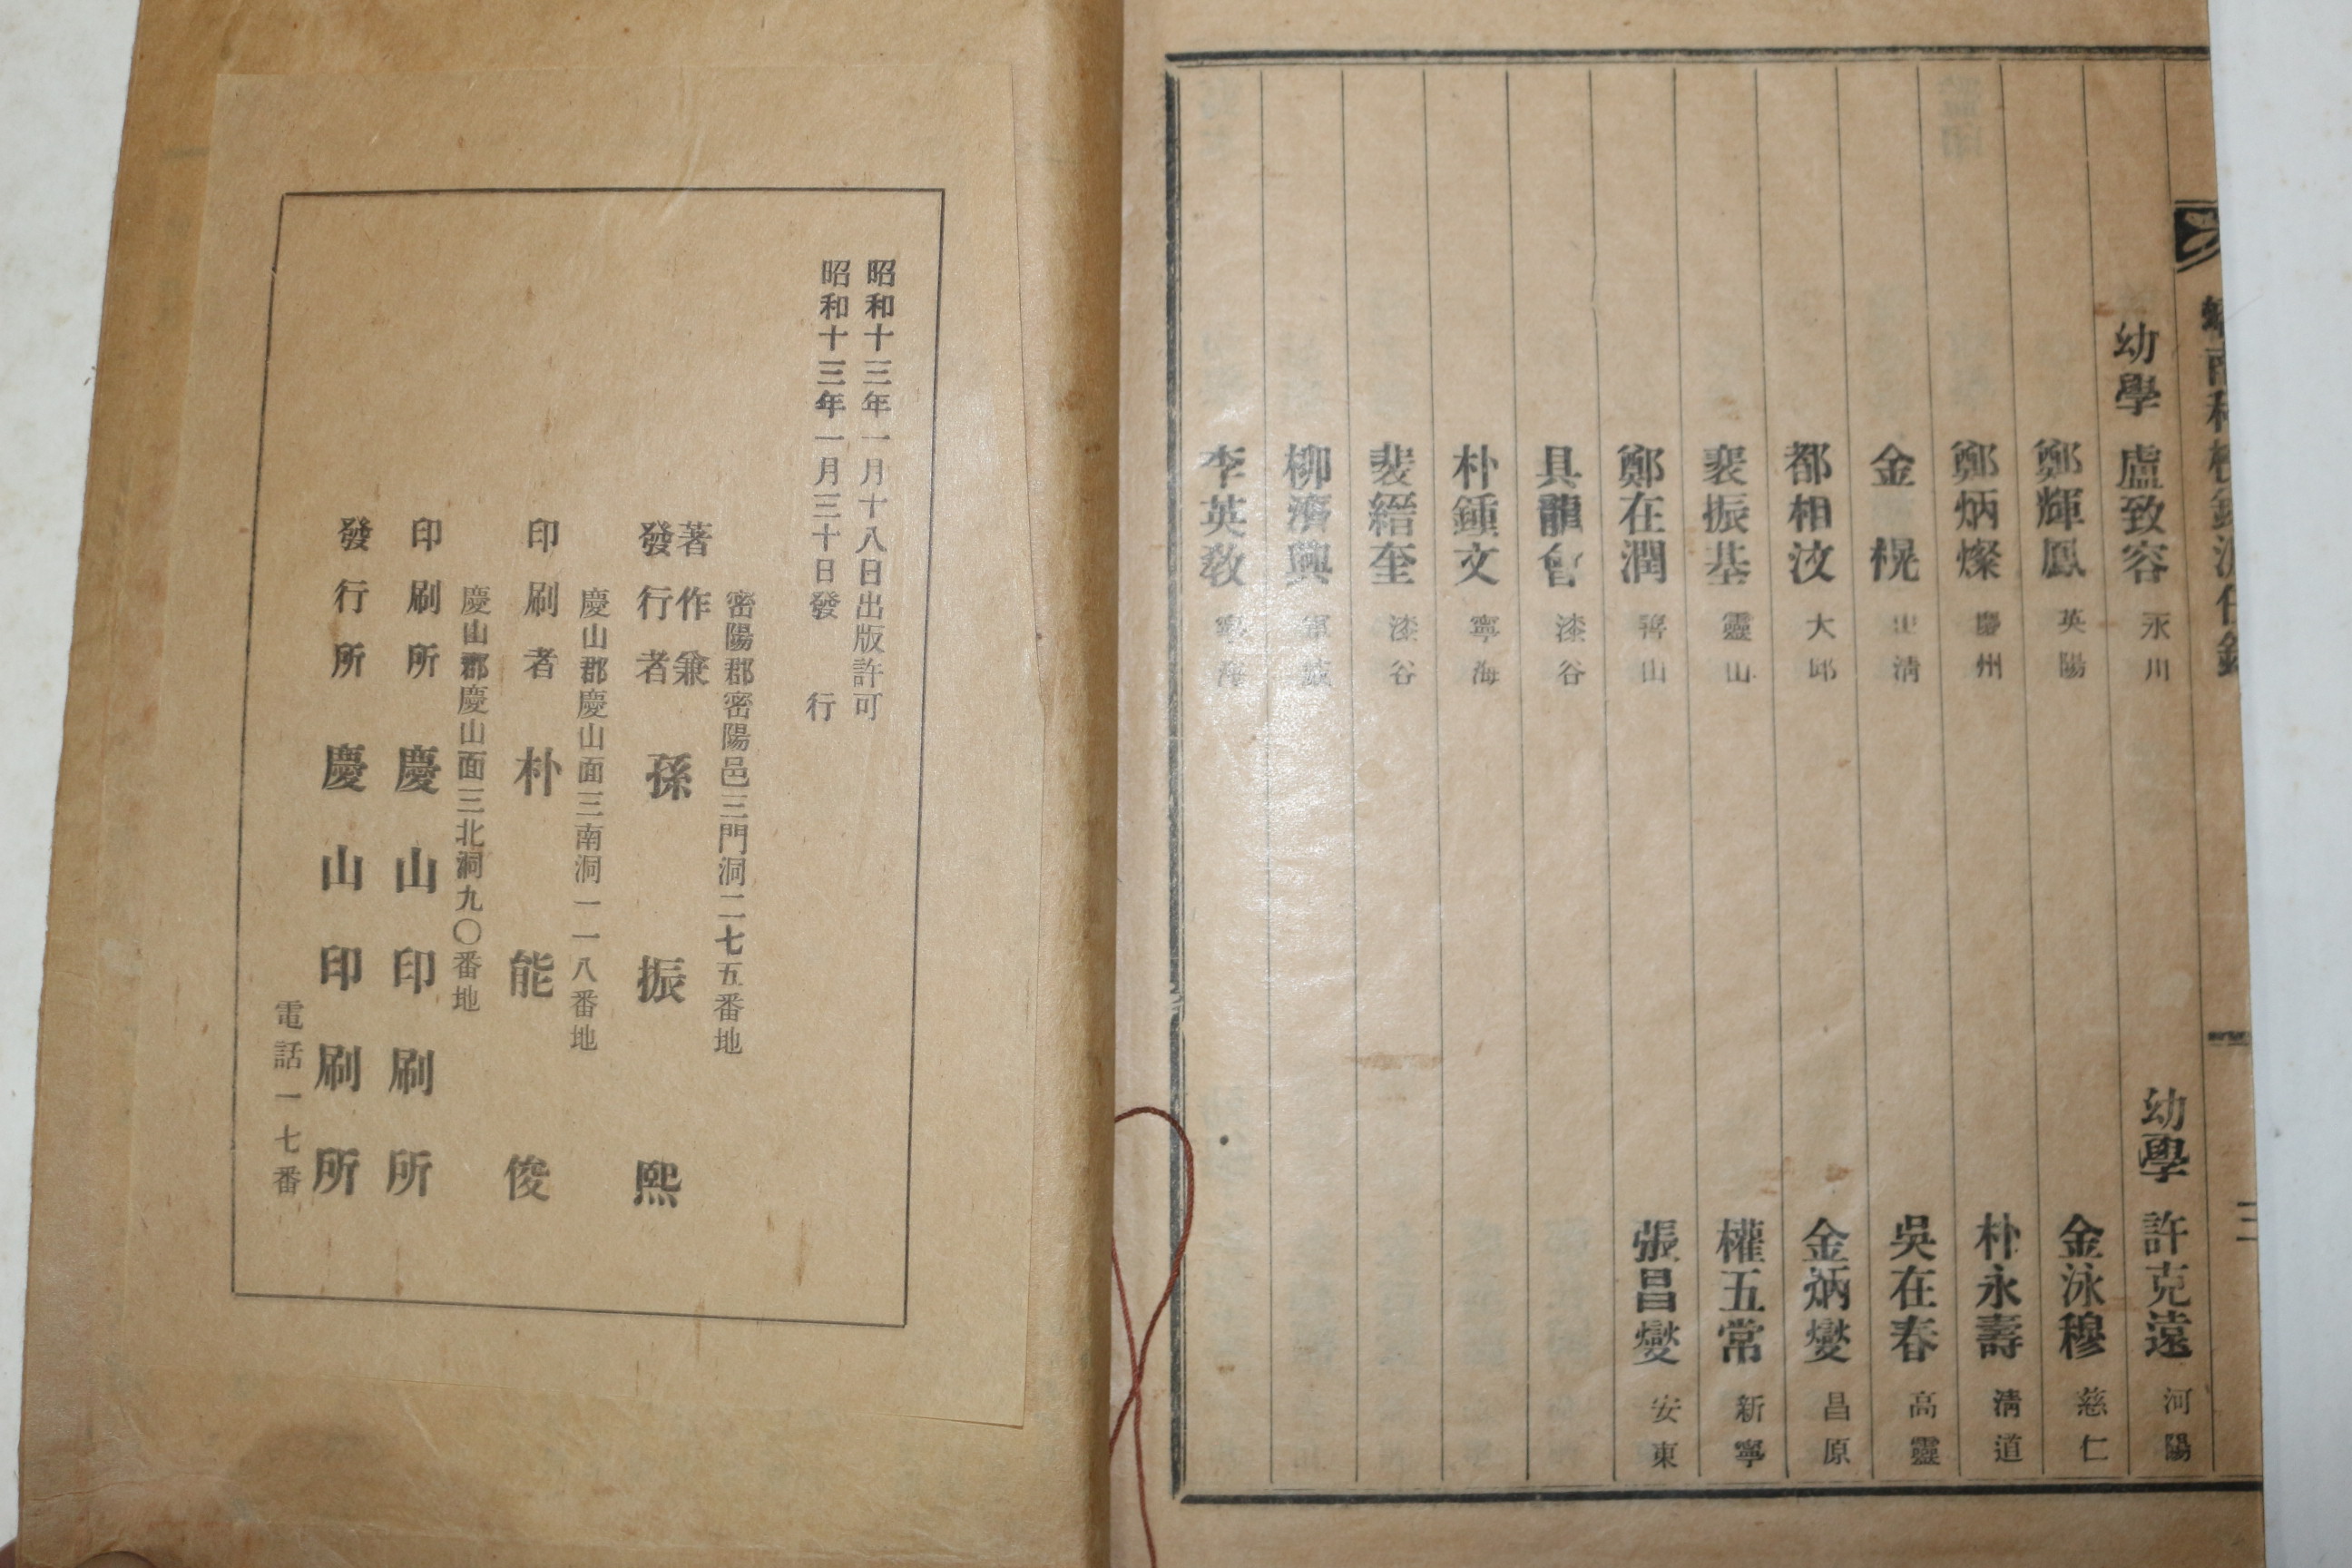 幼學 盧致容 永川
鄭輝鳳 英陽
鄭炳燦 慶州
金榥
都相汶 大邱
裵振基 靈山
鄭在潤
具龍會 漆谷
朴鍾文 寧海
裴縉奎 漆谷
柳濟興
李英敎
幼學 許克遠 河陽
金泳穆 慈仁
朴永壽 淸道
吳在春 高靈
金炳燮 昌原
權五常 新寧
張昌燮 安東
三
昭和十三年一月十八日出版許可
昭和十三年一月三十日發行
密陽郡密陽邑三門洞二七五番地
著作兼
發行者 孫振熙
慶山郡慶山面三南洞一一八番地
印刷者 朴能俊
慶山郡慶山面三北洞九〇番地
印刷所 慶山印刷所
發行所 慶山印刷所
電話一七番